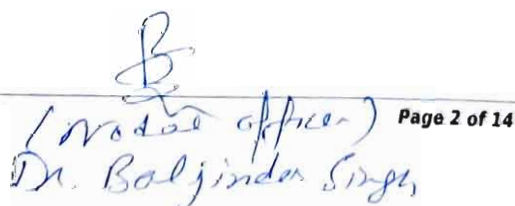 (Nodal officer) Page 2 of 14
Dr. Baljinder Singh